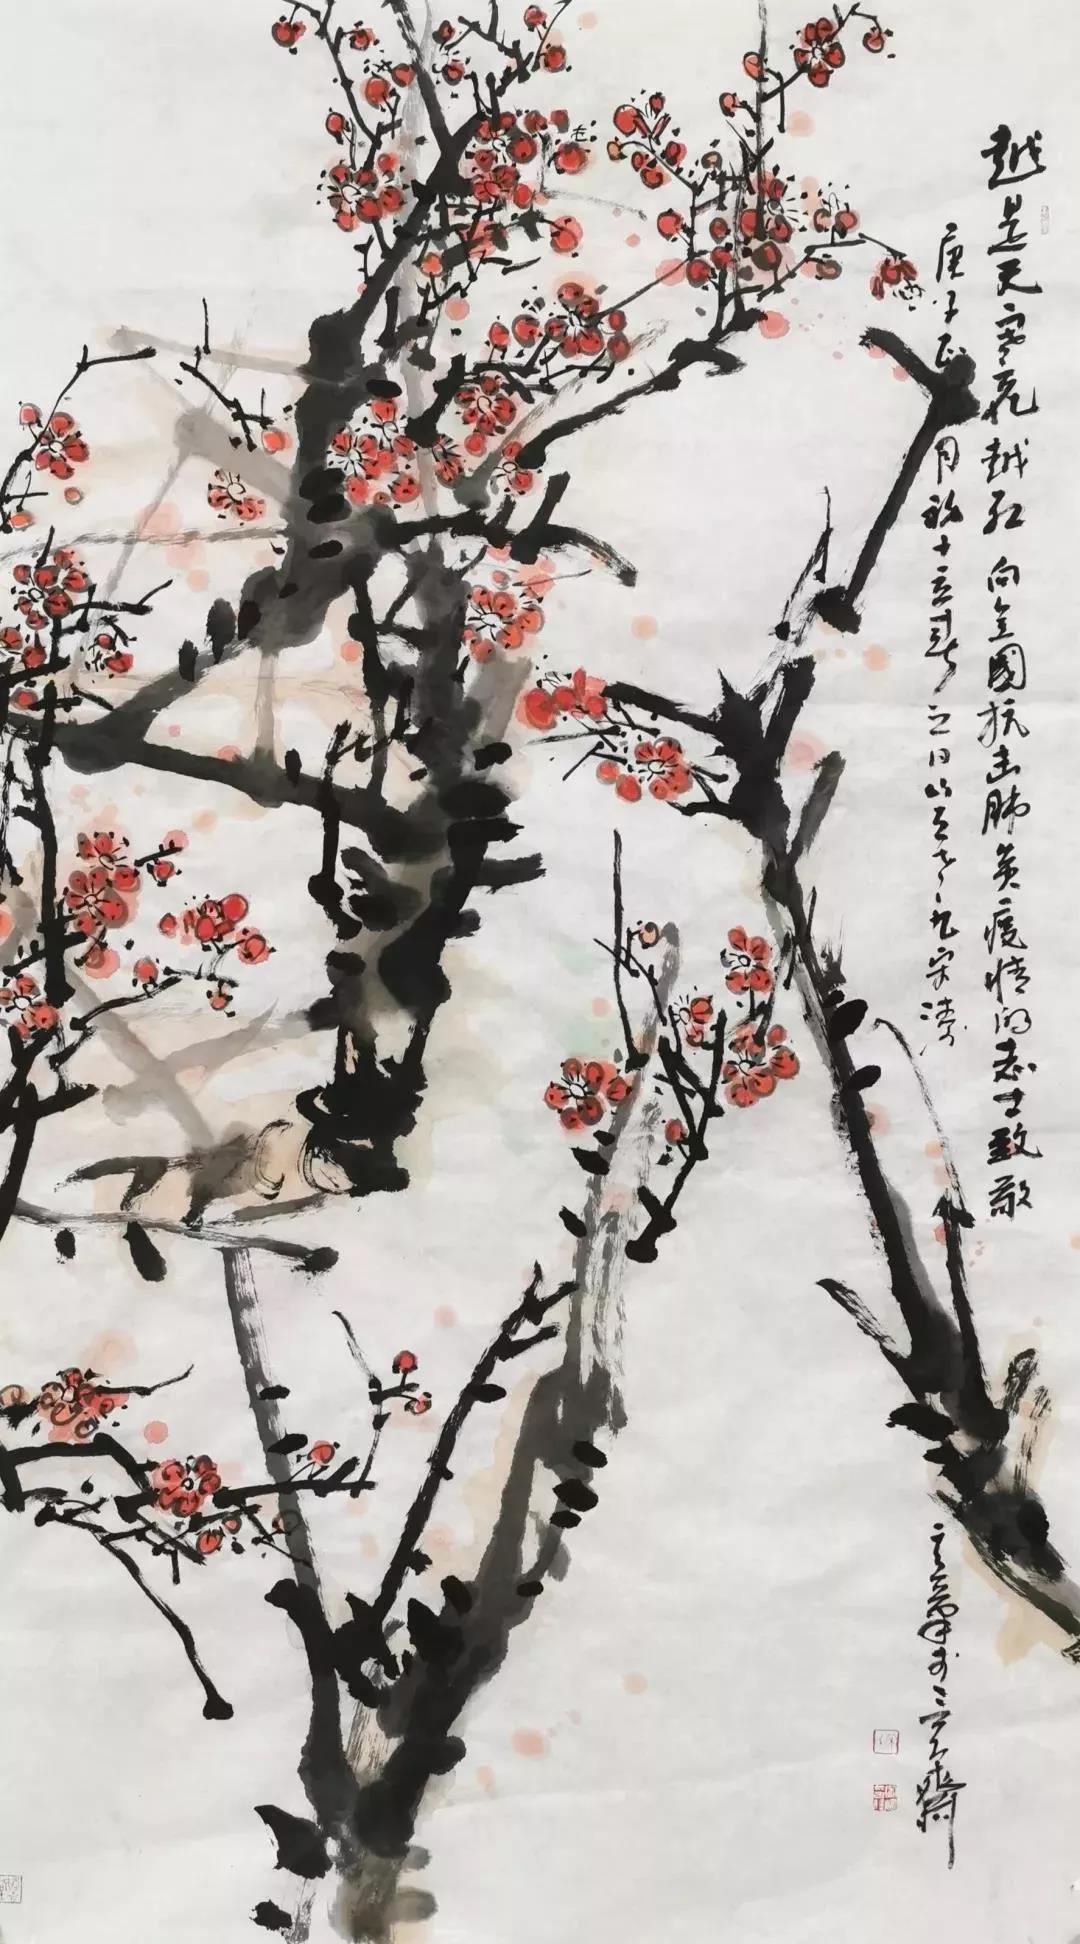 越是天寒花越红 向全國抗击肺炎疫情的志士致敬
庚子正月初十立春之日
宋涛